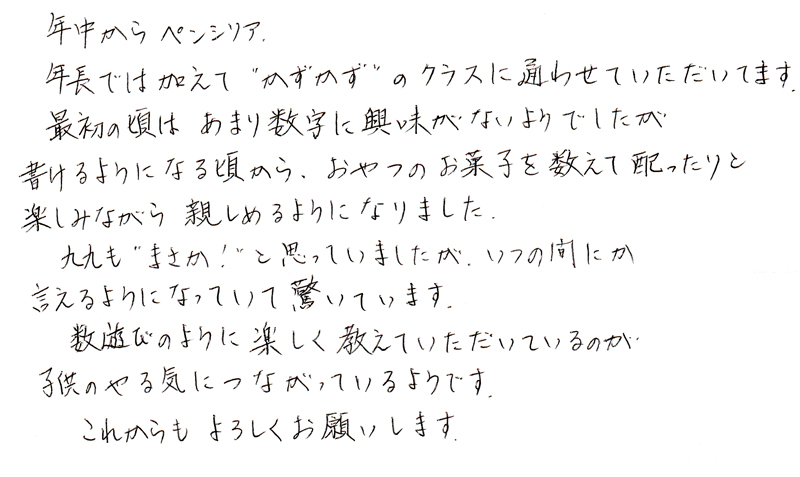 年中から ペンシリア.
年長では加えて"かずかず"のクラスに通わせていただいてます.
最初の頃は あまり数字に興味がないようでしたが
書けるようになる頃から、おやつのお菓子を数えて配ったりと
楽しみながら 親しめるようになりました.
九九も"まさか!"と思っていましたが、いつの間にか
言えるようになっていて驚いています.
数遊びのように楽しく教えていただいているのが
子供のやる気につながっているようです.
これからも よろしくお願いします.